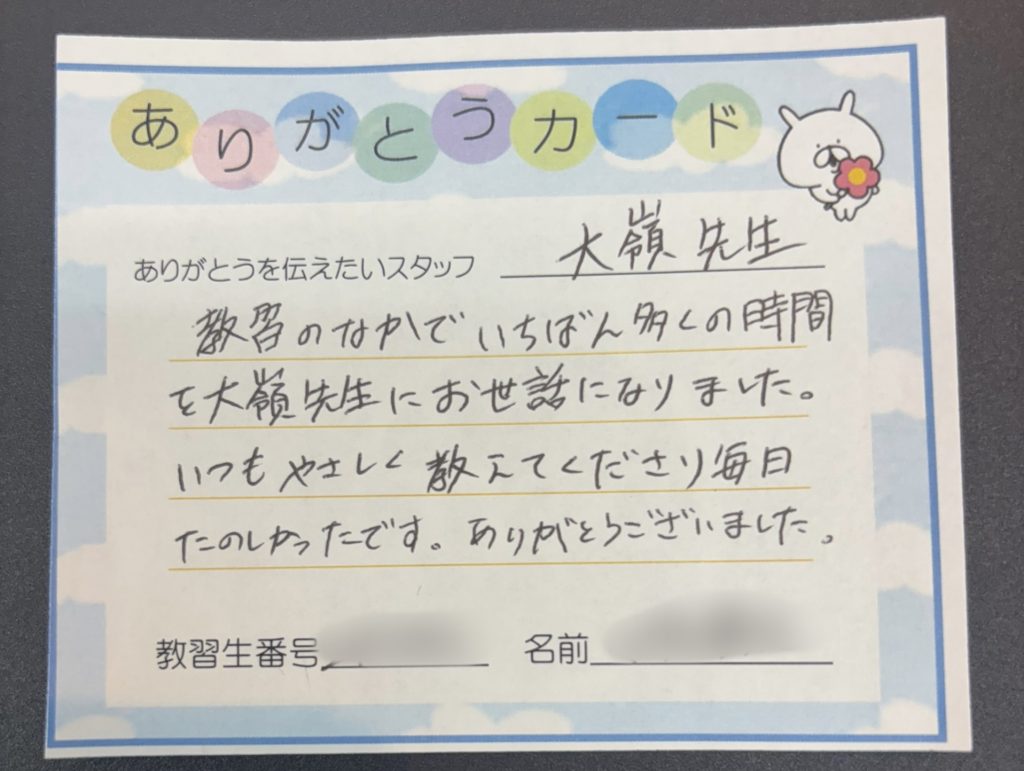 ありがとうカード
ありがとうを伝えたいスタッフ 大嶺 先生
教習のなかでいちばん多くの時間
を大嶺先生にお世話になりました。
いつもやさしく教えてくださり毎日
たのしかったです。ありがとうございました。
教習生番号 名前